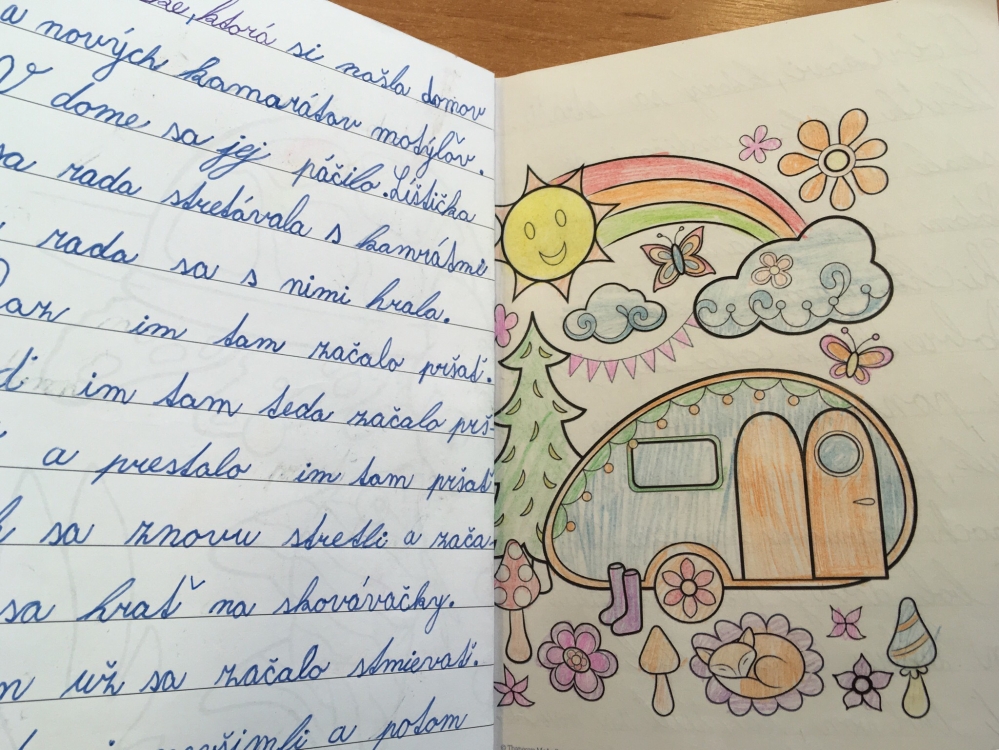 ktorá si našla domov
a nových kamarátov motýľov.
V dome sa jej páčilo. Líštička
sa rada stretávala s kamrátmi
rada sa s nimi hrala.
im tam začalo pršať.
im tam teda začalo prš-
a prestalo im tam pršať
sa znovu stretli a zača-
sa hrať na skováváčky.
už sa začalo stmievať.
a potom